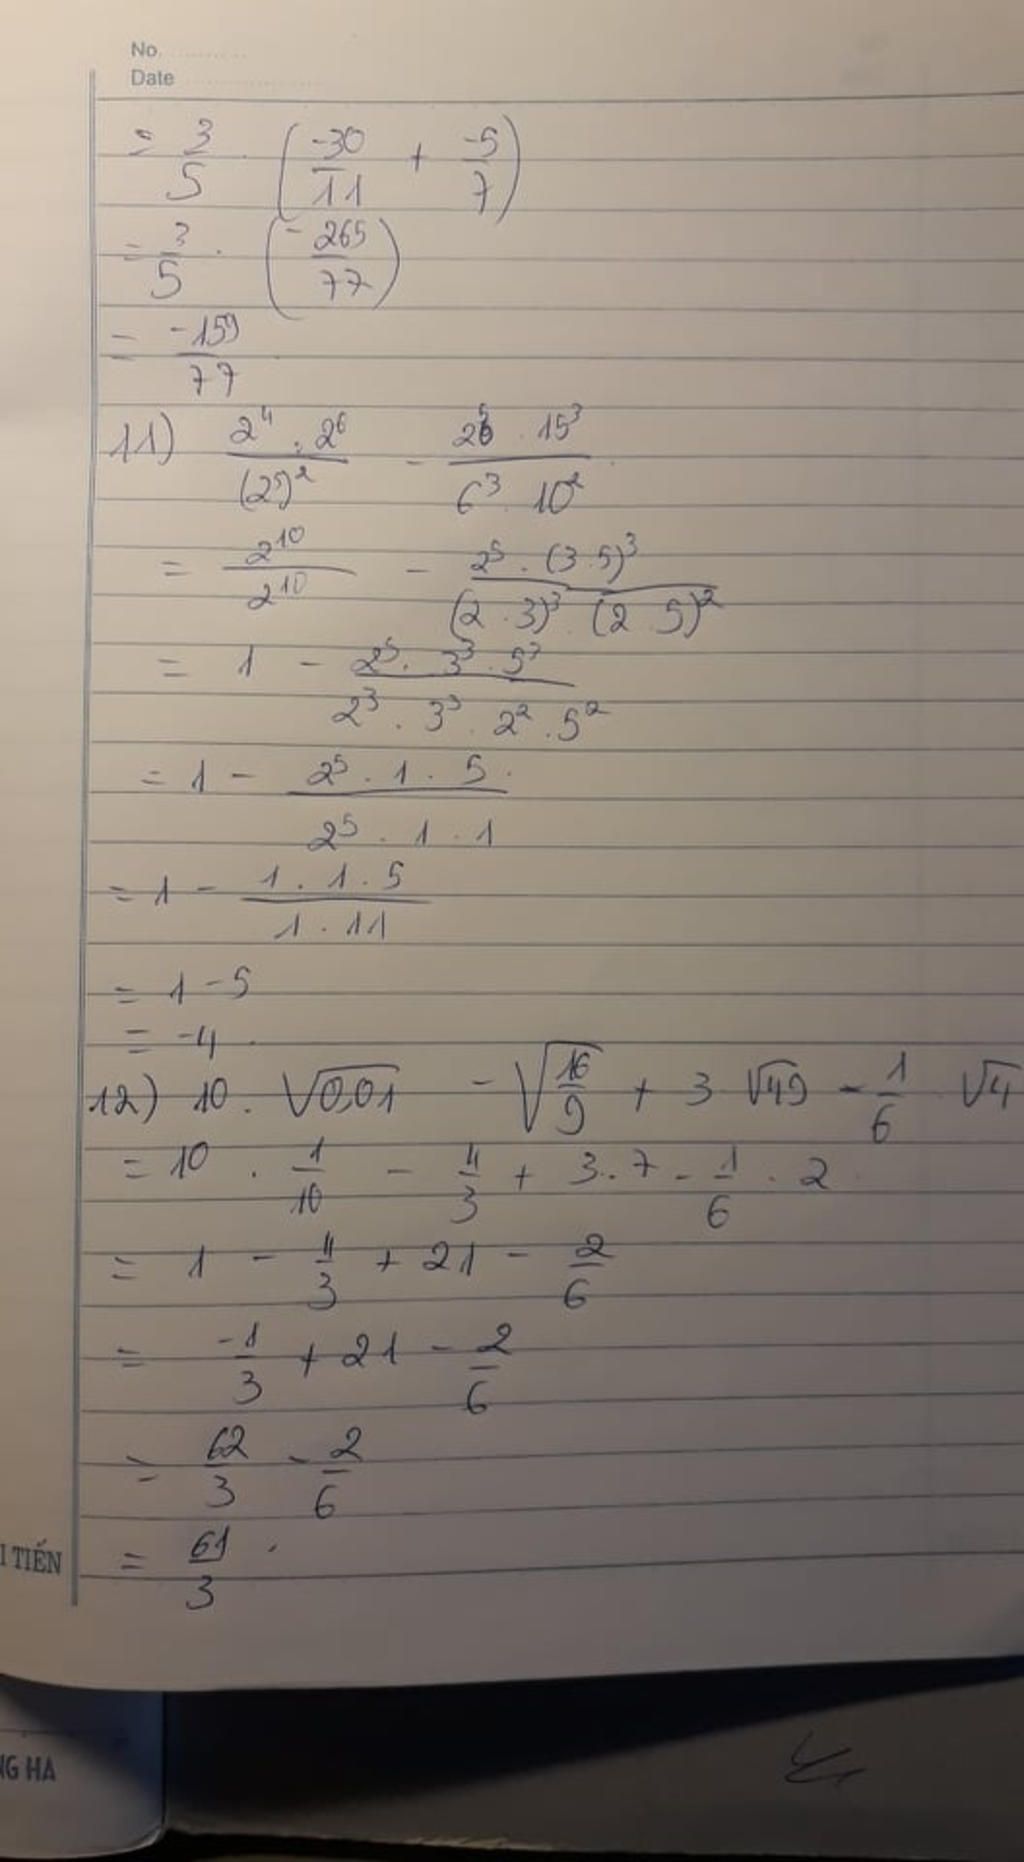 No.
Date
= 3/5 . (-30/11 + -5/7)
= 3/5 . (-265/77)
= -159/77
11) 2⁴ . 2⁶/(2⁵)² - 2⁵ . 15³/6³ . 10²
= 2¹⁰/2¹⁰ - 2⁵ . (3.5)³/(2 . 3)³ . (2 . 5)²
= 1 - 2⁵ . 3³ . 5³/2³ . 3³ . 2² . 5²
= 1 - 2⁵ . 1 . 5/2⁵ . 1 . 1
= 1 - 1 . 1 . 5/1 . 11
= 1 - 5
= -4
12) 10 . √0,01 - √16/9 + 3 √49 - 1/6 √4
= 10 . 1/10 - 4/3 + 3 . 7 - 1/6 . 2
= 1 - 4/3 + 21 - 2/6
= -1/3 + 21 - 2/6
= 62/3 - 2/6
= 61/3 .
I TIẾN
NG HA